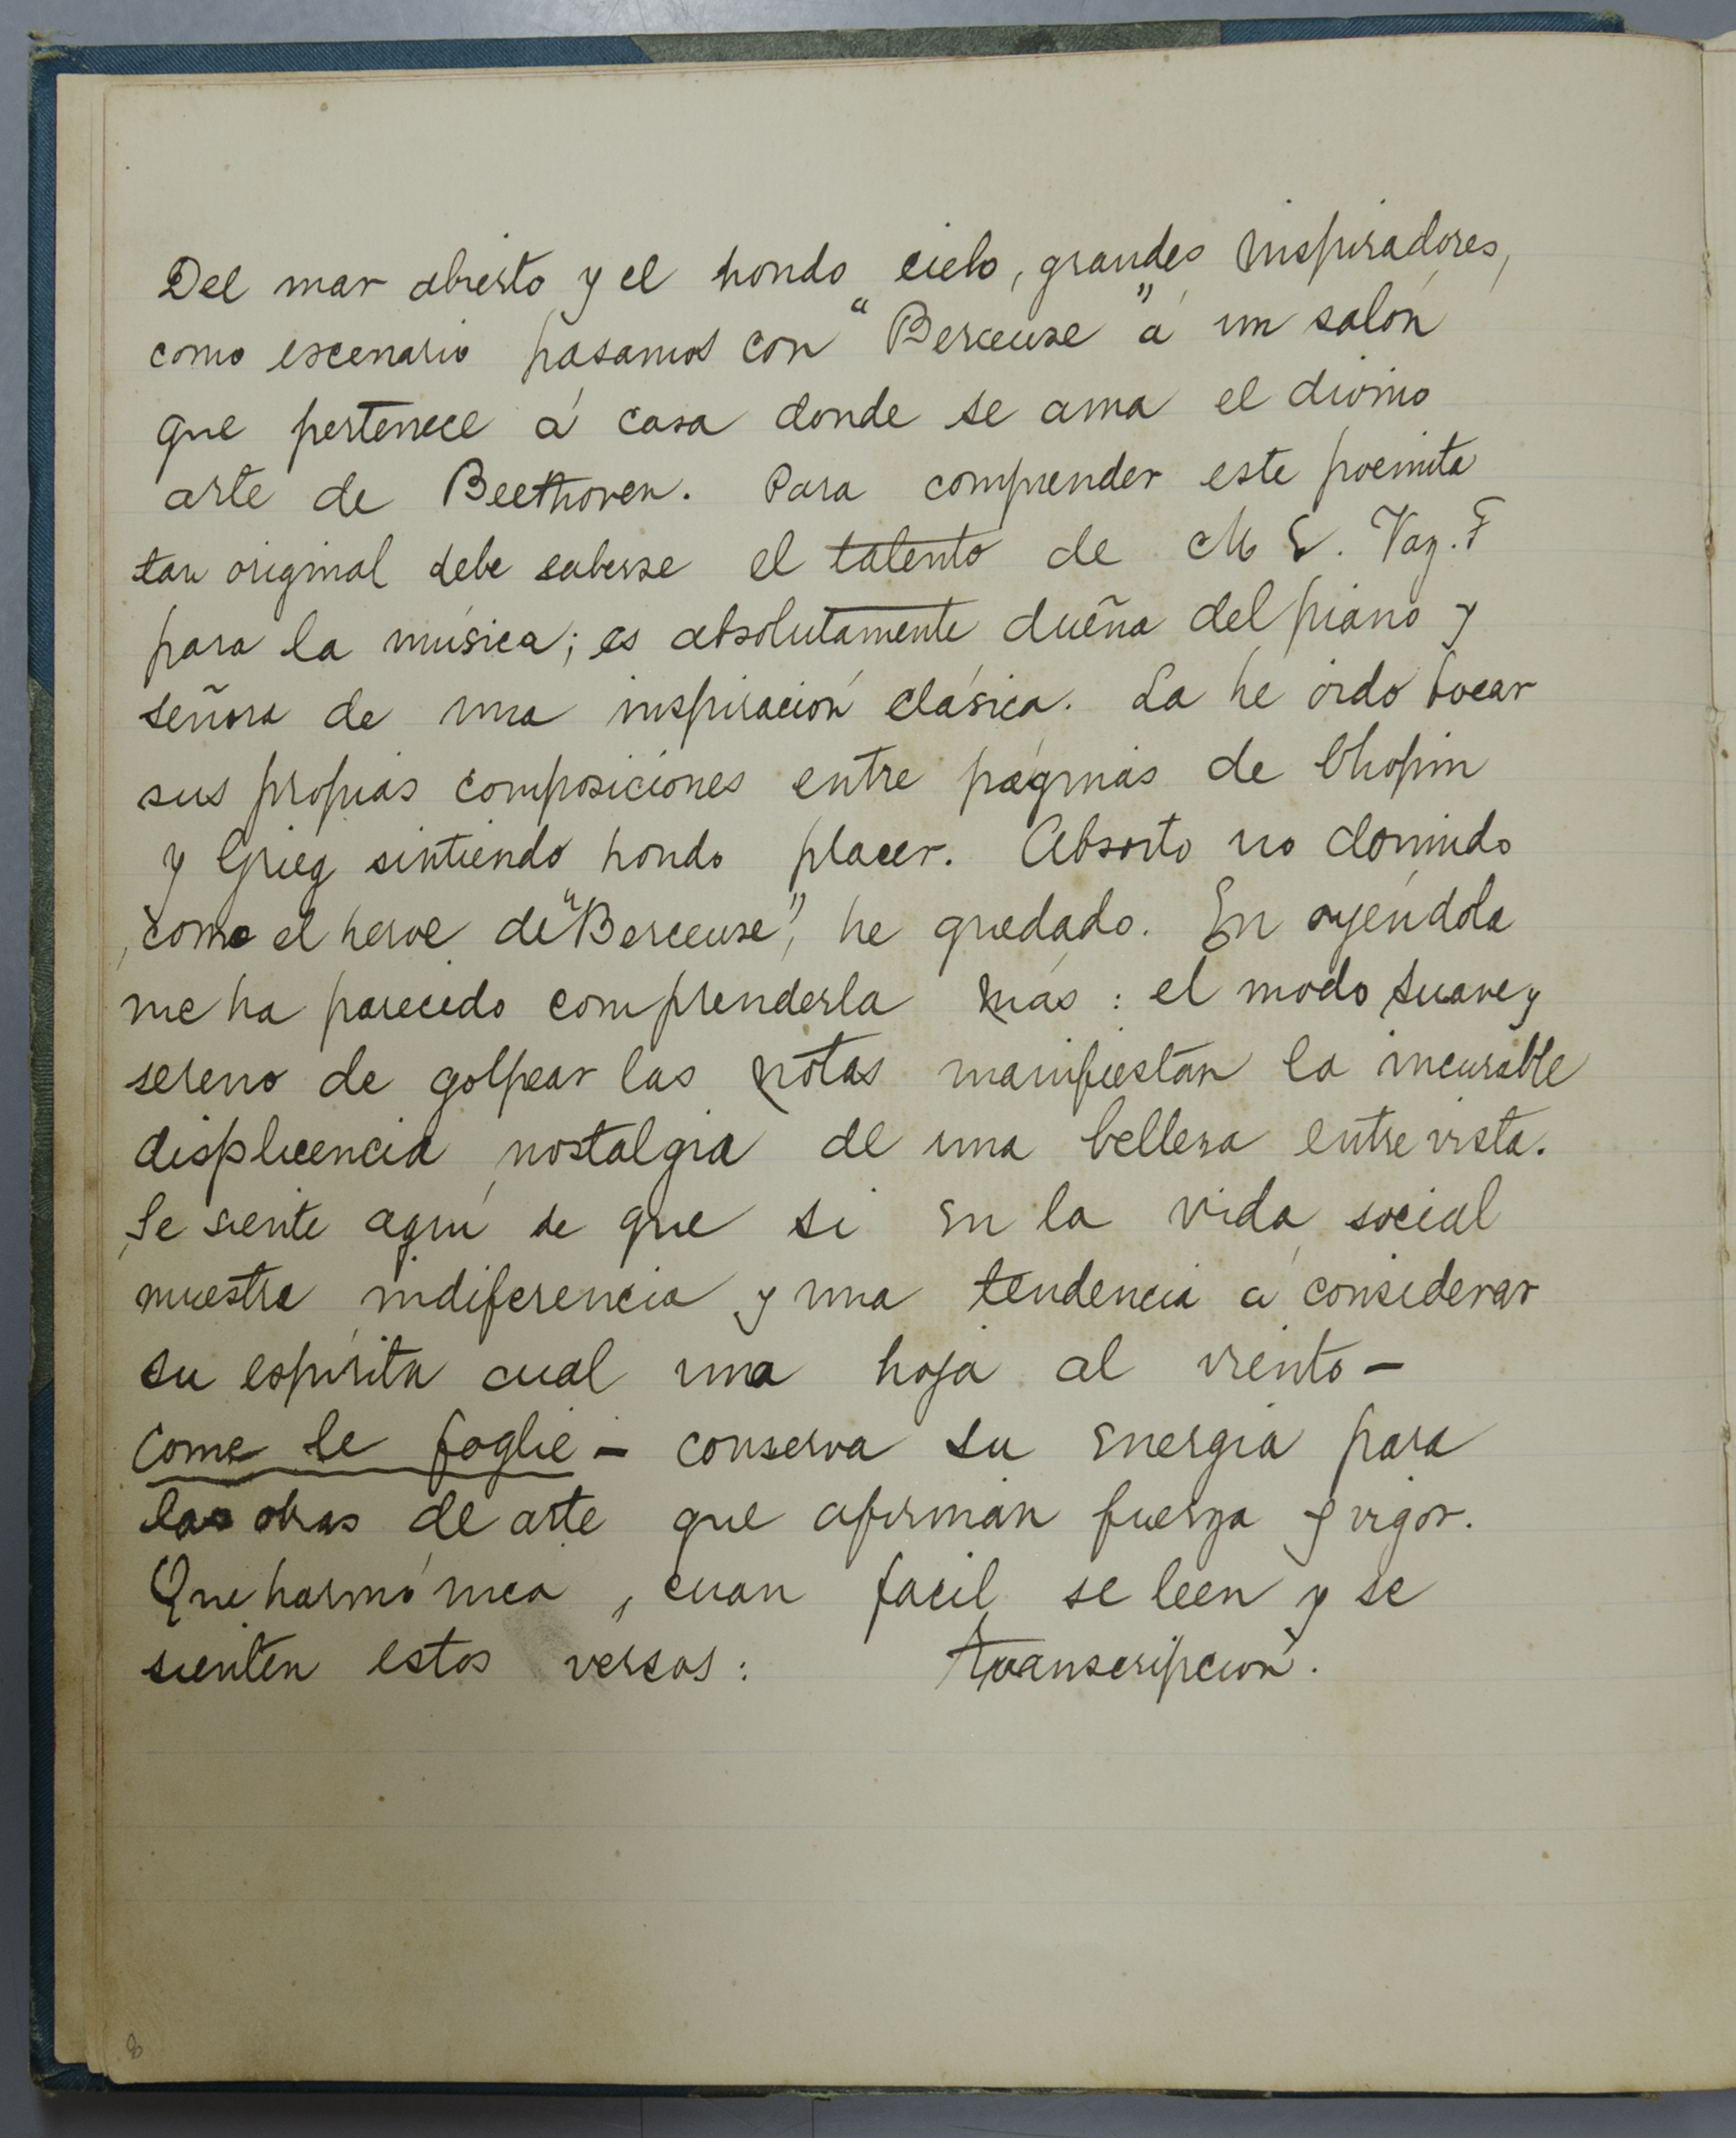 Del mar abierto y el hondo cielo, grandes inspiradores,
como escenario pasamos con "Berceuse" á un salón
que pertenece á casa donde se ama el divino
arte de Beethoven. Para comprender este poemita
tan original debe saberse el talento de M E. Vaz. F
para la música; es absolutamente dueña del piano y
señora de una inspiración clásica. La he oido tocar
sus propias composiciones entre páginas de Chopin
y Grieg sintiendo hondo placer. Absorto no dormido
como el heroe de "Berceuse", he quedado. En oyéndola
me ha parecido comprenderla más: el modo suave y
sereno de golpear las notas manifiestan la incurable
displicencia nostalgia de una belleza entrevista.
Se siente aquí de que si en la vida social
muestra indiferencia y una tendencia á considerar
su espíritu cual una hoja al viento –
come le foglie – conserva su energia para
las obras de arte que afirman fuerza y vigor.
Que harmónica, cuan facil se leen y se
sienten estos versos: Transcripción.
8